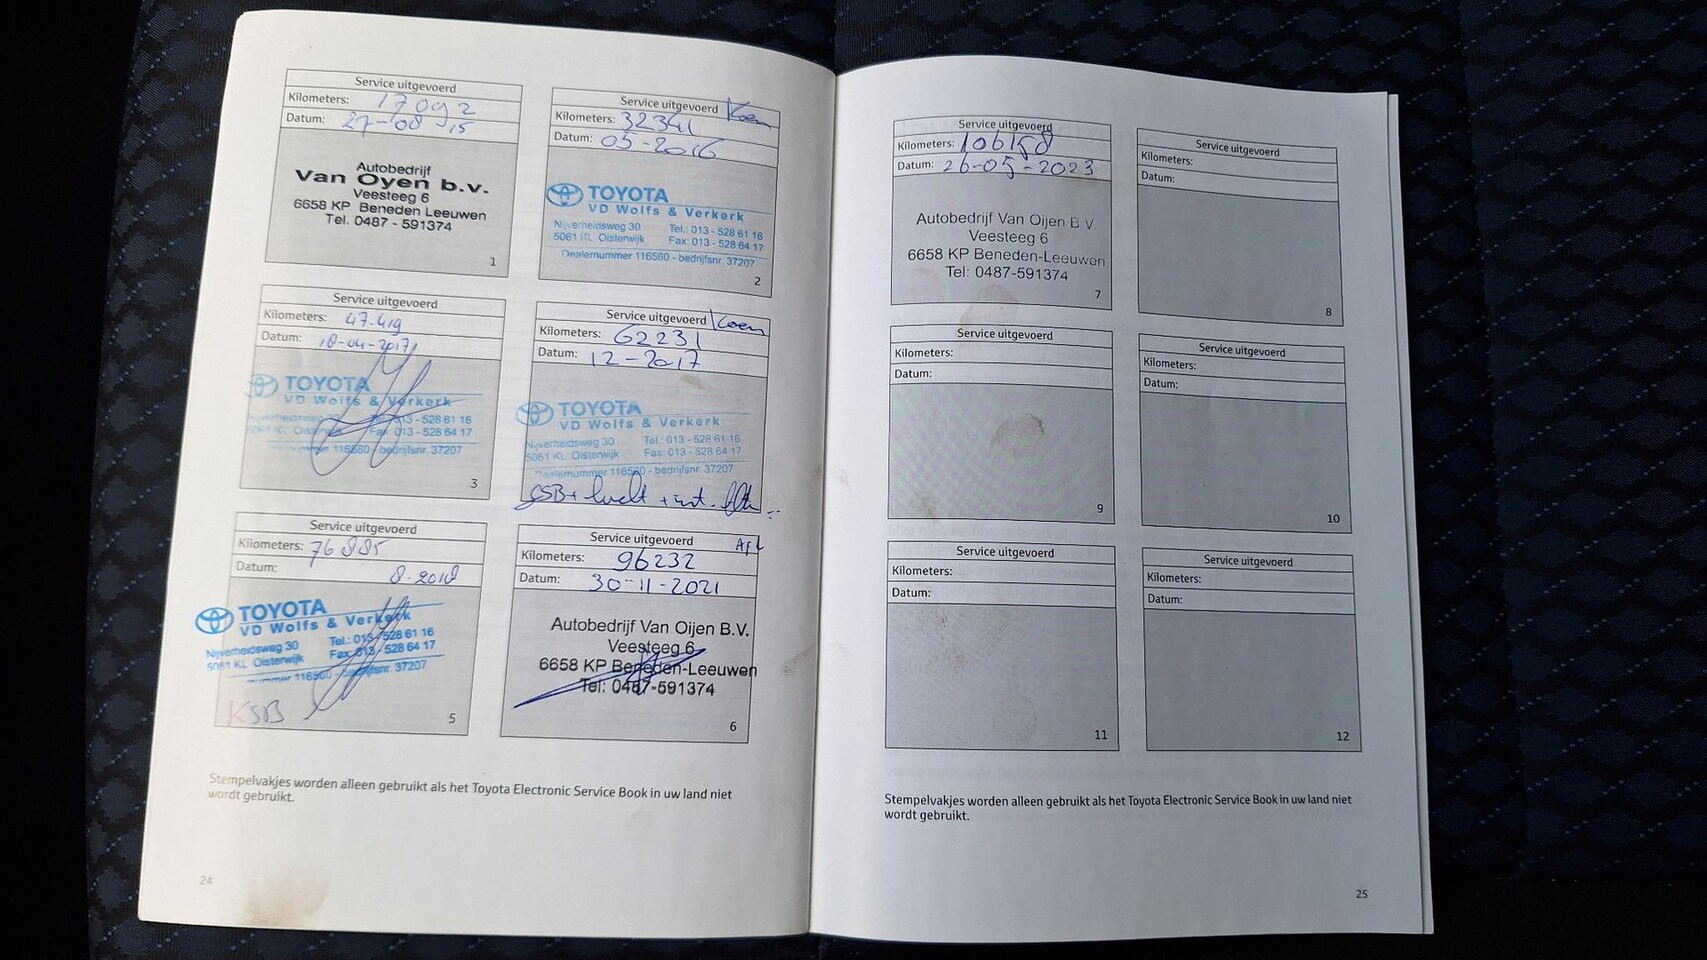 Service uitgevoerd
Kilometers: 17092
Datum: 27-08 15
Autobedrijf
Van Oyen b.v.
Veesteeg 6
6658 KP Beneden Leeuwen
Tel. 0487 - 591374
1
Service uitgevoerd Koen
Kilometers: 32341
Datum: 05-2016
TOYOTA
VD Wolfs & Verkerk
Nijverheidsweg 30 Tel.: 013 - 528 61 16
5061 KL Oisterwijk Fax: 013 - 528 64 17
Dealernummer 116560 - bedrijfsnr. 37207
2
Service uitgevoerd
Kilometers: 47.419
Datum: 18-04-2017
TOYOTA
VD Wolfs & Verkerk
Nijverheidsweg 30 Tel.: 013 - 528 61 16
5061 KL Oisterwijk Fax: 013 - 528 64 17
116560 - bedrijfsnr. 37207
3
Service uitgevoerd Koen
Kilometers: 62231
Datum: 12-2017
TOYOTA
VD Wolfs & Verkerk
Nijverheidsweg 30 Tel.: 013 - 528 61 16
5061 KL Oisterwijk Fax: 013 - 528 64 17
Dealernummer 116560 - bedrijfsnr. 37207
+ lucht + int.
Service uitgevoerd
Kilometers: 76885
Datum: 8-2018
TOYOTA
VD Wolfs & Verkerk
Nijverheidsweg 30 Tel.: 013 - 528 61 16
5061 KL Oisterwijk Fax: 013 - 528 64 17
nummer 116560 - bedrijfsnr. 37207
KSB
5
Service uitgevoerd
Kilometers: 96232
Datum: 30-11-2021
Autobedrijf Van Oijen B.V.
Veesteeg 6
6658 KP Beneden-Leeuwen
Tel: 0487-591374
6
Stempelvakjes worden alleen gebruikt als het Toyota Electronic Service Book in uw land niet
wordt gebruikt.
24
Service uitgevoerd
Kilometers: 106158
Datum: 26-05-2023
Autobedrijf Van Oijen B V
Veesteeg 6
6658 KP Beneden-Leeuwen
Tel: 0487-591374
7
Service uitgevoerd
Kilometers:
Datum:
8
Service uitgevoerd
Kilometers:
Datum:
9
Service uitgevoerd
Kilometers:
Datum:
10
Service uitgevoerd
Kilometers:
Datum:
11
Service uitgevoerd
Kilometers:
Datum:
12
Stempelvakjes worden alleen gebruikt als het Toyota Electronic Service Book in uw land niet
wordt gebruikt.
25